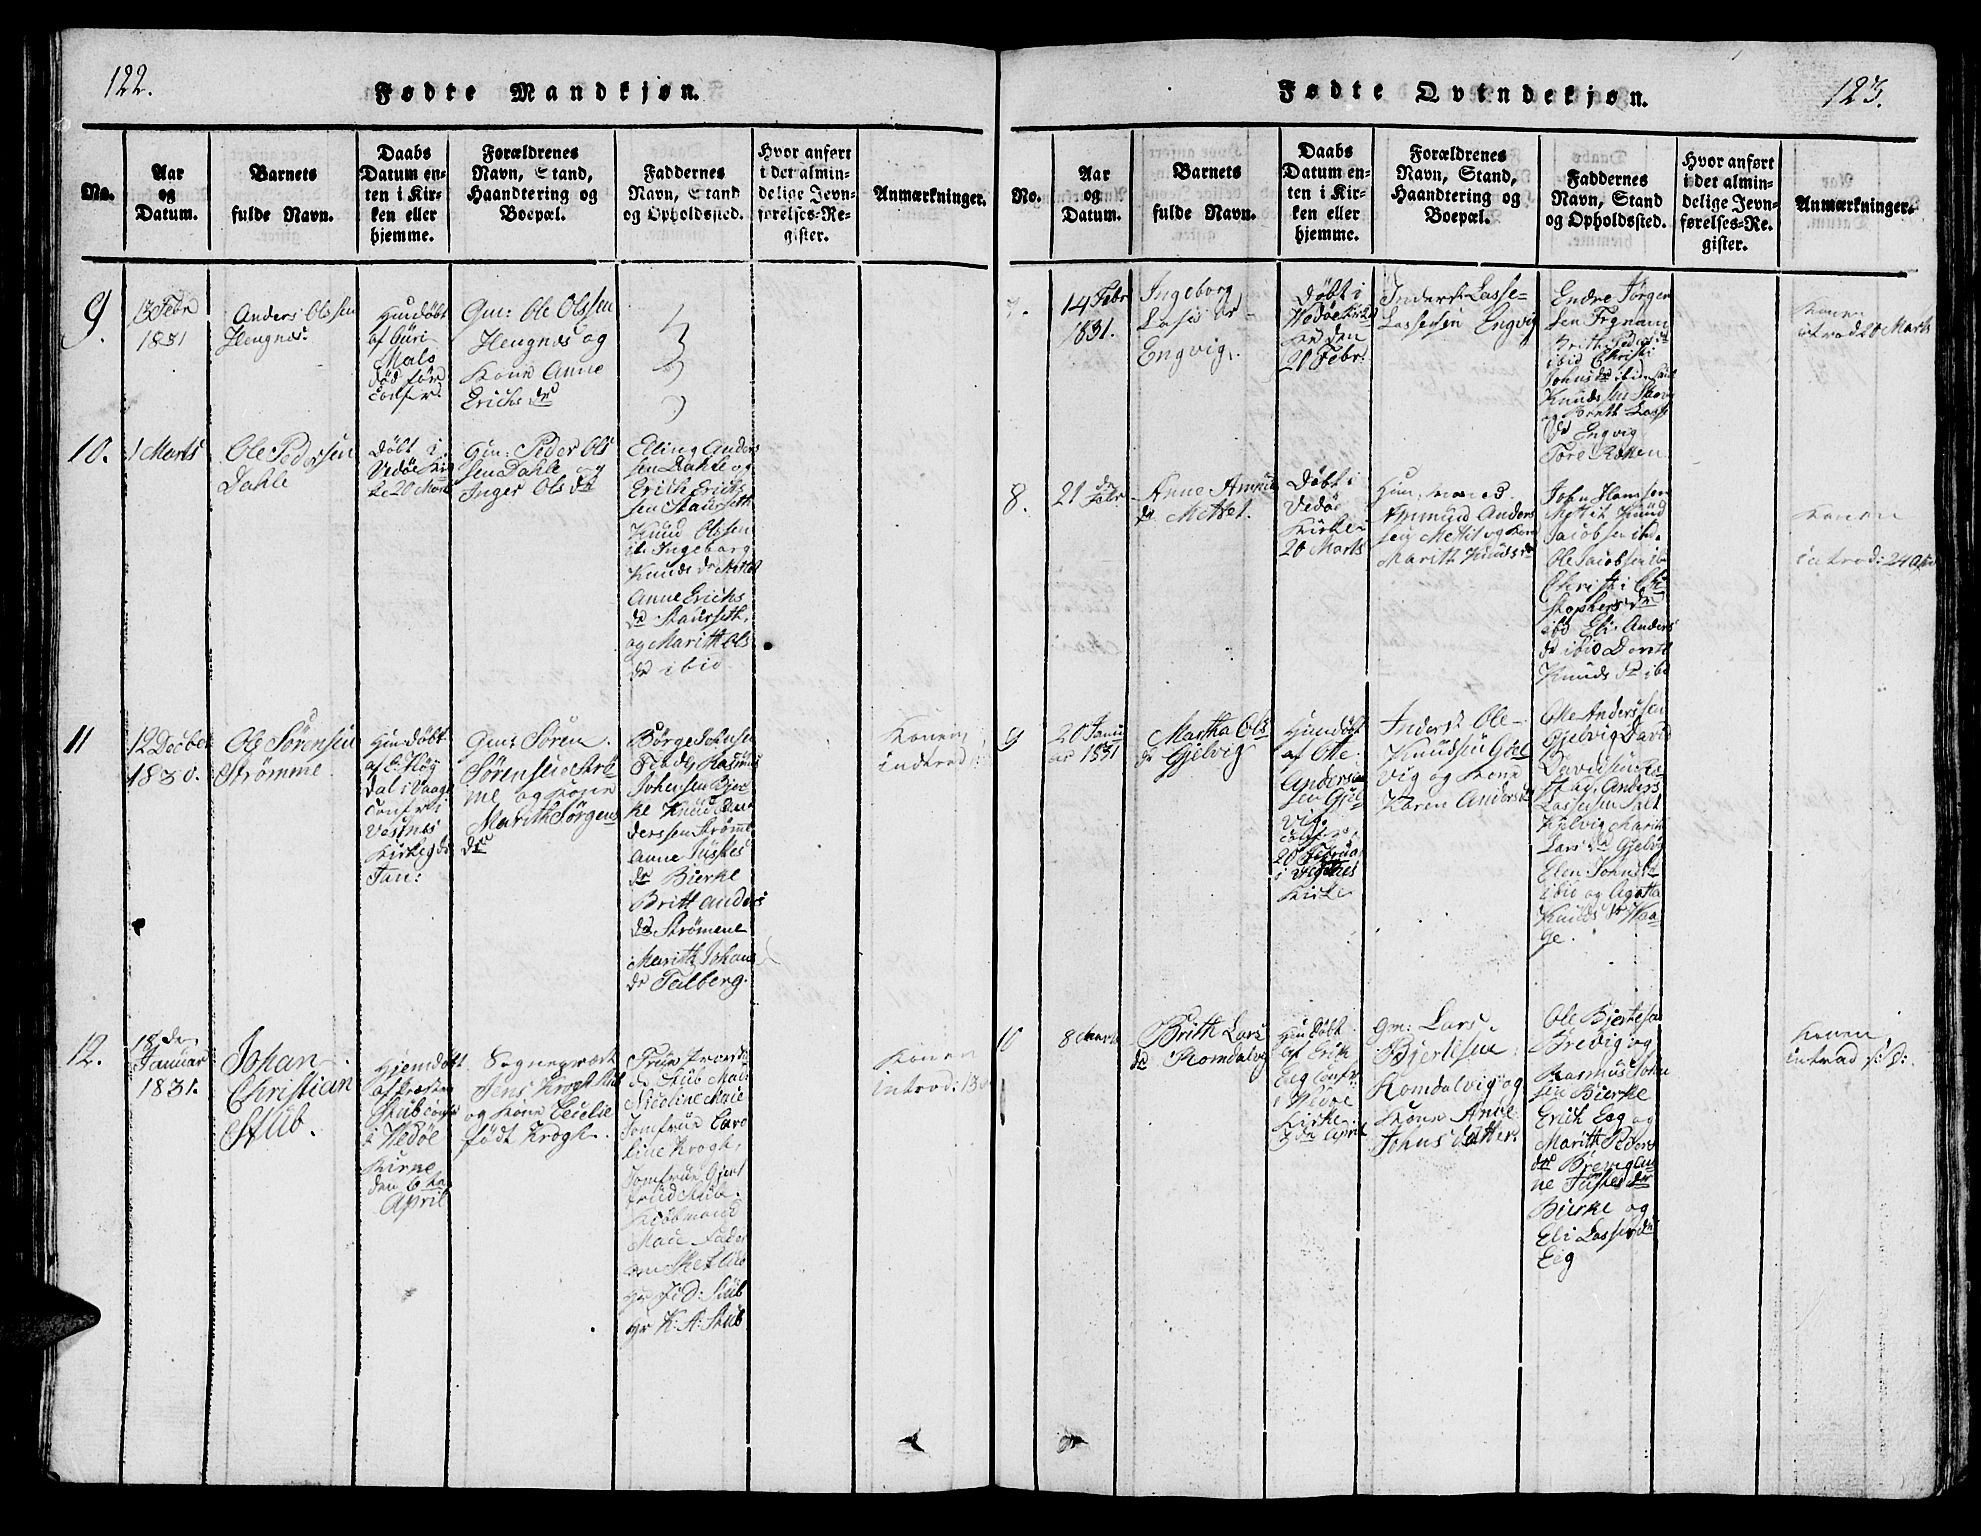 122.
Fødte Mandkjøn.
No.
Aar
og
Datum.
Barnets
fulde Navn.
Daabs
Datum en-
ten i Kir-
ken eller
hjemme.
Forældrenes
Navn, Stand,
Haandtering og
Boepæl.
Faddernes
Navn, Stand
og Opholdssted.
Hvor anført
i det almin-
delige Jevn-
førelses-Re-
gister.
Anmærkninger.
9.
13 Febr
1831
Anders Olssen
Hengnæs.
Hiemdøbt
af Guri
Mals
død før
Confir.
Gm: Ole Olssen
Hengnæs og
Kone Anne
Erichs dr
10.
1 Marts
Ole Pedersen
Dahle
Døbt i
Vedøe Kir
ke 20 Marts
Gm: Peder Ols
sen Dahle og
Inger Ols dr
Elling Anders
sen Dahle og
Erich Erichs
sen Staurseth
Knud Olssen
it. Ingeborg
Knuds dr Mettet
Anne Erichs
dr Staurseth,
og Marith Ols
dr ibid
11
12 Decber
1830.
Ole Sørensen
Strømme
Hiemdøbt
dal i Vaage
Confir i
Vestnæs
Kirke
Jan:
Gm: Søren
Sørensen Strøm
me og Kone
Marith Jørgens
dr
Børge Johnsen
Johnsen Bjer
ke Knud An
derssen Strømme
Anne Justes
dr Bierke
Britt Anders
dr Strømme
Marith Johans
dr Talberg.
Konen
introd:
12.
18 de
Januar
1831.
Johan
Christian
Stub.
Hjemdøbt
af Præsten
Stub conf
i Vedøe
Kirke
den 6te
April
Sognepræst
Jens Krogh Stub
og Kone Cecilie
født Krogh.
Stub Mad
Nicoline Maie
Jomfrue Caro
line Krogh,
Jomfrue Gjert
rud Stub.
Kiøbmand
Hr J: D: Stub
Hr K: A: Stub
Konen
introd: 13
123.
Fødte Qvindekjøn.
No.
Aar
og
Datum.
Barnets
fulde Navn.
Daabs
Datum en-
ten i Kir-
ken eller
hjemme.
Forældrenes
Navn, Stand,
Haandtering og
Boepæl.
Faddernes
Navn, Stand
og Opholdssted.
Hvor anført
i det almin-
delige Jevn-
førelses-Re-
gister.
Anmærkninger.
7.
14 Febr
1831.
Ingeborg
Lasses dr
Engvig.
Døbt i
Vedøe Kir
ke den
20 Febr:
Inderst Lasse
Lassesen Engvig
Endre Jørgen
sen
Brith Peders dr
ibid Christi
Johns dr ibidem
og Brith Lasse
dr Engvig
Konen
introd 20 Marts
8.
21 de
Febr
Anne Amunds
dr Mettet.
Døbt i
Vedøe
Kirke
20 Marts
Amund Anders
sen Mettet og Kone
Marith Knuds dr
John Hanssen
Mettet Knud
Jacobsen ibd.
Ole Jacobsen ib
Christi Chri
stophers dr
ibd Eli Anders
dr ibid Doreth
Knuds dr ibd
Konen
introd: 24 April
9
20 Janu
ar 1831
Martha Ols
dr Gjelvig
Hiemdøbt
af Ole
Anders
sen Gjel
vig.
confir.
20 Februar
i Vestnæs
Kirke
Inderst Ole
Knudsen Gjel
vig og Kone
Karen Anders dr
Ole Anderssen
Gjelvig David
Davidsen
Anders
Lassesen
Gjelvig Marith
Lars dr Gjelvig
Elen Johns dr
ibid og Agatha
Knuds dr Waa
ge.
10
8 Martz
Brith Lars
dr Romdalvig
Hiemdøbt
af Erik
Eeg Confir
i Vedøe
Kirke
3 de April
Gm: Lars
Bjertesen
Romdalvig og
Kone Anne
Johns datter
Ole Bjertesen
Brevig og
Rasmus John
sen Bierke
Erich Eeg og
Marith Peders
dr Brevig An
ne Justes dr
Bierke og
Eli Lasses dr
Eeg
Konen
introd s: D: